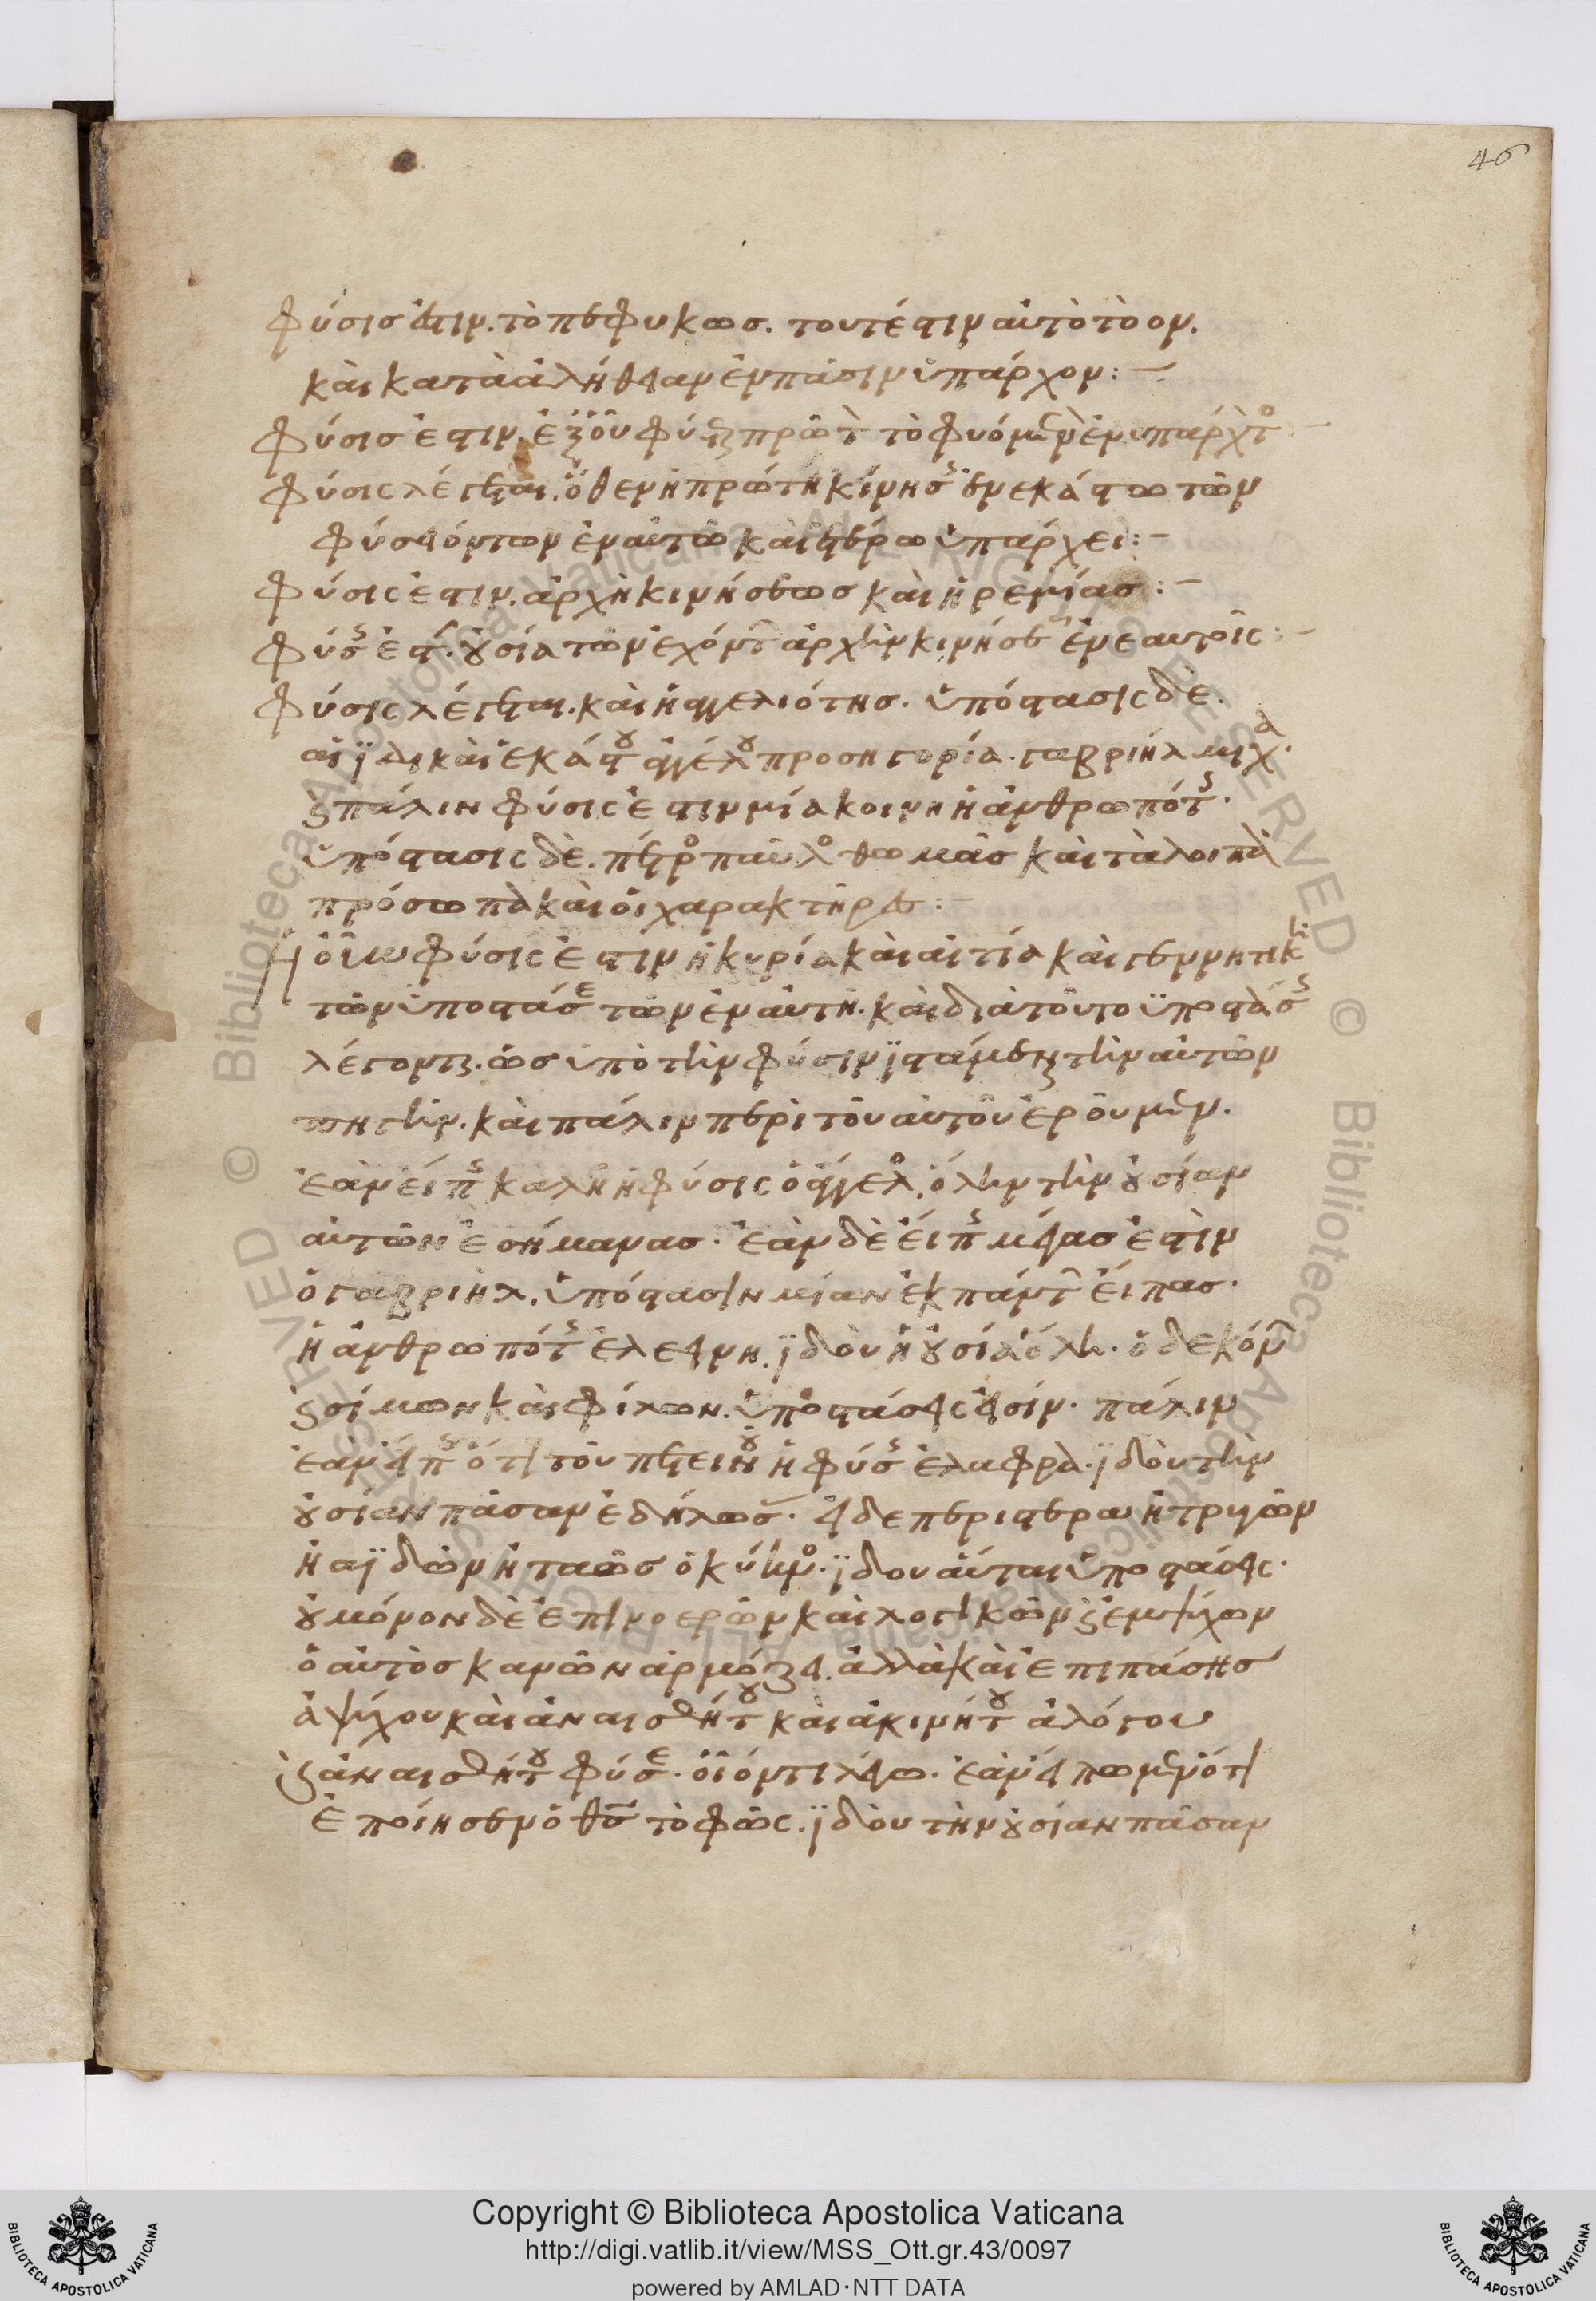 46
φύσις ἐστιν. τὸ πεφυκως. τουτέστιν αὐτὸ τὸ ον.
καὶ κατὰ ἀλήθειαν ἐν πᾶσιν ὑπάρχον:—
φύσις ἐστιν. ἐξ οὗ φύεται πρῶτ τὸ φυόμενον ἐνυπάρχτο
φύσις λέγεται. ὅθεν ἡ πρώτη κίνησις ἐν εκάστω τῶν
φύσει όντων ἐν αὐτῶ καὶ ετέρω ὑπάρχει:—
φύσις ἐστιν. ἀρχὴ κινήσεως καὶ ἠρεμίας:—
φύσις ἐστ. οὐσία τῶν ἐχόντ ἀρχὴν κινήσεως ἐν εαυτοῖς:—
φύσις λέγεται. καὶ ἡ αγγελιότης. ὑπόστασις δὲ.
αϊδι καὶ ἑκάστου ἀγγέλου προσηγορία. γαβριὴλ μιχα.
καὶ πάλιν φύσις ἐστιν μία κοινὴ ἡ ἀνθρωπότης.
ὑπόστασις δὲ. πέτρος παῦλος θωμᾶς καὶ τὰ λοιπὰ
πρόσωπα καὶ οἱ χαρακτῆρες:—
Ἡ οὖν φύσις ἐστιν ἡ κυρία καὶ αἰτία καὶ γεννητικὴ
τῶν ὑποστάσεων τῶν ἐν αὐτῆ. καὶ διὰ τοῦτο ὑποστάσεις
λέγονται. ὡς ὑπὸ τὴν φύσιν ϊστάμεναι τὴν αὐτῶν
πηγήν. καὶ πάλιν περὶ τοῦ αὐτοῦ ἐροῦμεν.
ἐὰν εἴπης καλὴ ἡ φύσις ὁ ἄγγελος, ὅλην τὴν οὐσίαν
αὐτῶν ἐσήμανας. ἐὰν δὲ εἴπης μέγας ἐστὶν
ὁ γαβριὴλ. ὑπόστασιν μίαν ἐκ πάντων εἶπας.
ἡ ἀνθρωπότης ἐλεεινη. ϊδοὺ ἡ οὐσία ὅλη. ὁ δε κόνων
καὶ σίμων καὶ φίλων. ὑποστάσεις εἰσίν. πάλιν
ἐὰν εἴπης ὅτι τοῦ πετεινοῦ ἡ φύσις ἐλαφρὰ. ϊδοὺ τὴν
οὐσίαν πᾶσαν ἐδήλωσας. εἰ δε περιστερα ἡ τρυγὼν
ἡ αϊδὼν ἡ ταῶς ὁ κύκνος. ϊδου αὗται ὑποστάσεις.
οὐ μόνον δὲ ἐπὶ νοερῶν καὶ λογικῶν καὶ ἐμψύχων
ὁ αὐτὸς κανὼν ἁρμόζει. ἀλλὰ καὶ ἐπι πάσης
ἀψύχου καὶ ἀναισθήτου καὶ ἀκινήτου ἀλόγου
καὶ ἀναισθήτου φύσεως. οἷόν τι λέγω. ἐὰν εἴπωμεν ὅτι
ἐποίησεν ὁ θς τὸ φῶς. ϊδοὺ τὴν οὐσίαν πᾶσαν
Copyright © Biblioteca Apostolica Vaticana
http://digi.vatlib.it/view/MSS_Ott.gr.43/0097
powered by AMLAD·NTT DATA
BIBLIOTECA APOSTOLICA VATICANA
BIBLIOTECA APOSTOLICA VATICANA